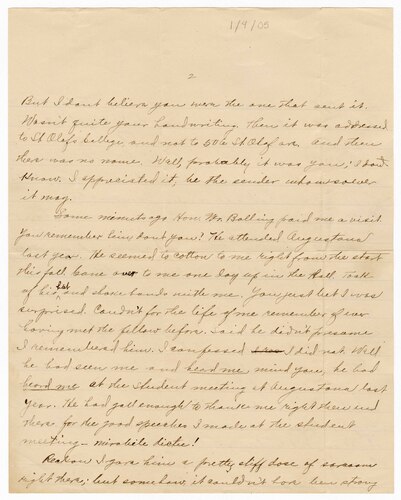 1/9/05
2
But I dont believe you were the one that sent it.
Wasn't quite your handwriting. Then it was addressed
to St Olafs College and not to 506 St Olaf ave. And then
there was no name. Well, probably it was you; I dont
know. I appreciated it, be the sender whomsoever
it may.
Some minutes ago Hon. Mr. Bolling paid me a visit
You remember him, dont you? He attended Augustana
last year. He seemed to cotton to me right from the start
this fall. Came over to me one day up in the Hall. Took
off his hat and shake hands with me. You just bet I was
surprised. Couldn't for the life of me remember of ever
having met the fellow before. Said he didn't presume
I remembered him. I confessed I did not. Well
he had seen me and heard me mind you, he had
heard me at the student meeting at Augustana last
year. He had gall enough to thank me right then and
there for the good speeches I made at the student
meeting — mirabile dictu!
Reckon I gave him a pretty stiff dose of sarcasm
right there; but somehow it couldn't have been strong